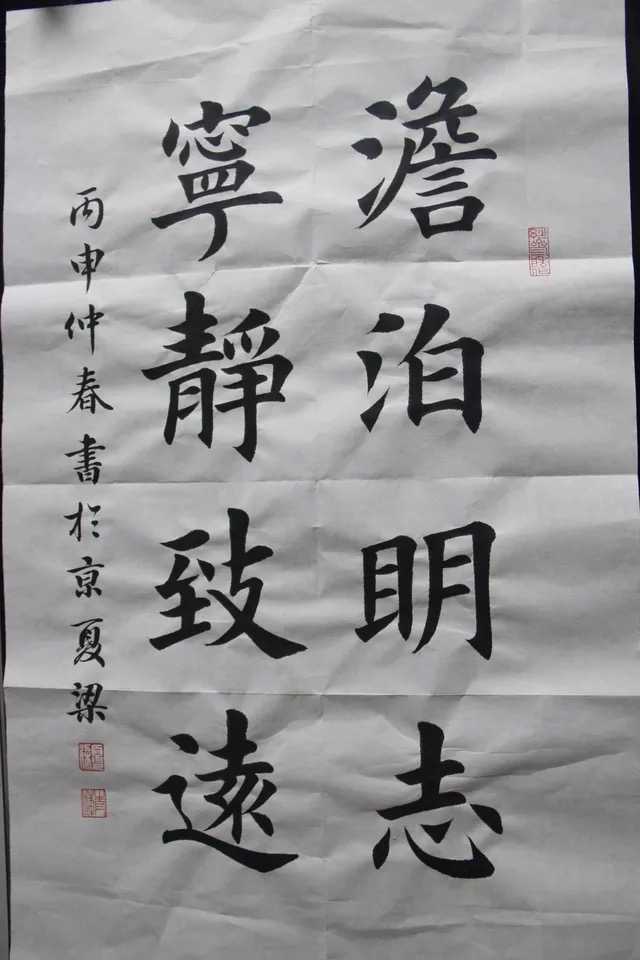 澹泊明志
寧靜致遠
丙申仲春書於京夏梁